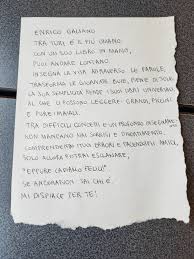 ENRICO GALIANO
TRA TUTTI È IL PIÙ UMANO.
CON UN SUO LIBRO IN MANO,
PUOI ANDARE LONTANO.
INSEGNA LA VITA ATTRAVERSO LE PAROLE,
TRASFORMA LE GIORNATE BUIE, PIENE DI SOLE.
LA SUA SEMPLICITÀ RENDE I SUOI LIBRI UNIVERSALI
AL CHE LI POSSONO LEGGERE: GRANDI, PICCOLI
E PURE I MAIALI.
TRA DIFFICILI CONCETTI E UN PROFONDO INSEGNAMENTO
NON MANCANO MAI SORRISI E DIVERTIMENTO.
COMPRENDERAI I TUOI ERRORI E FACENDOTI AMICI,
SOLO ALLORA POTRAI ESCLAMARE,
"EPPURE CADIAMO FELICI".
SE ANCORA NON SAI CHI È,
MI DISPIACE PER TE!